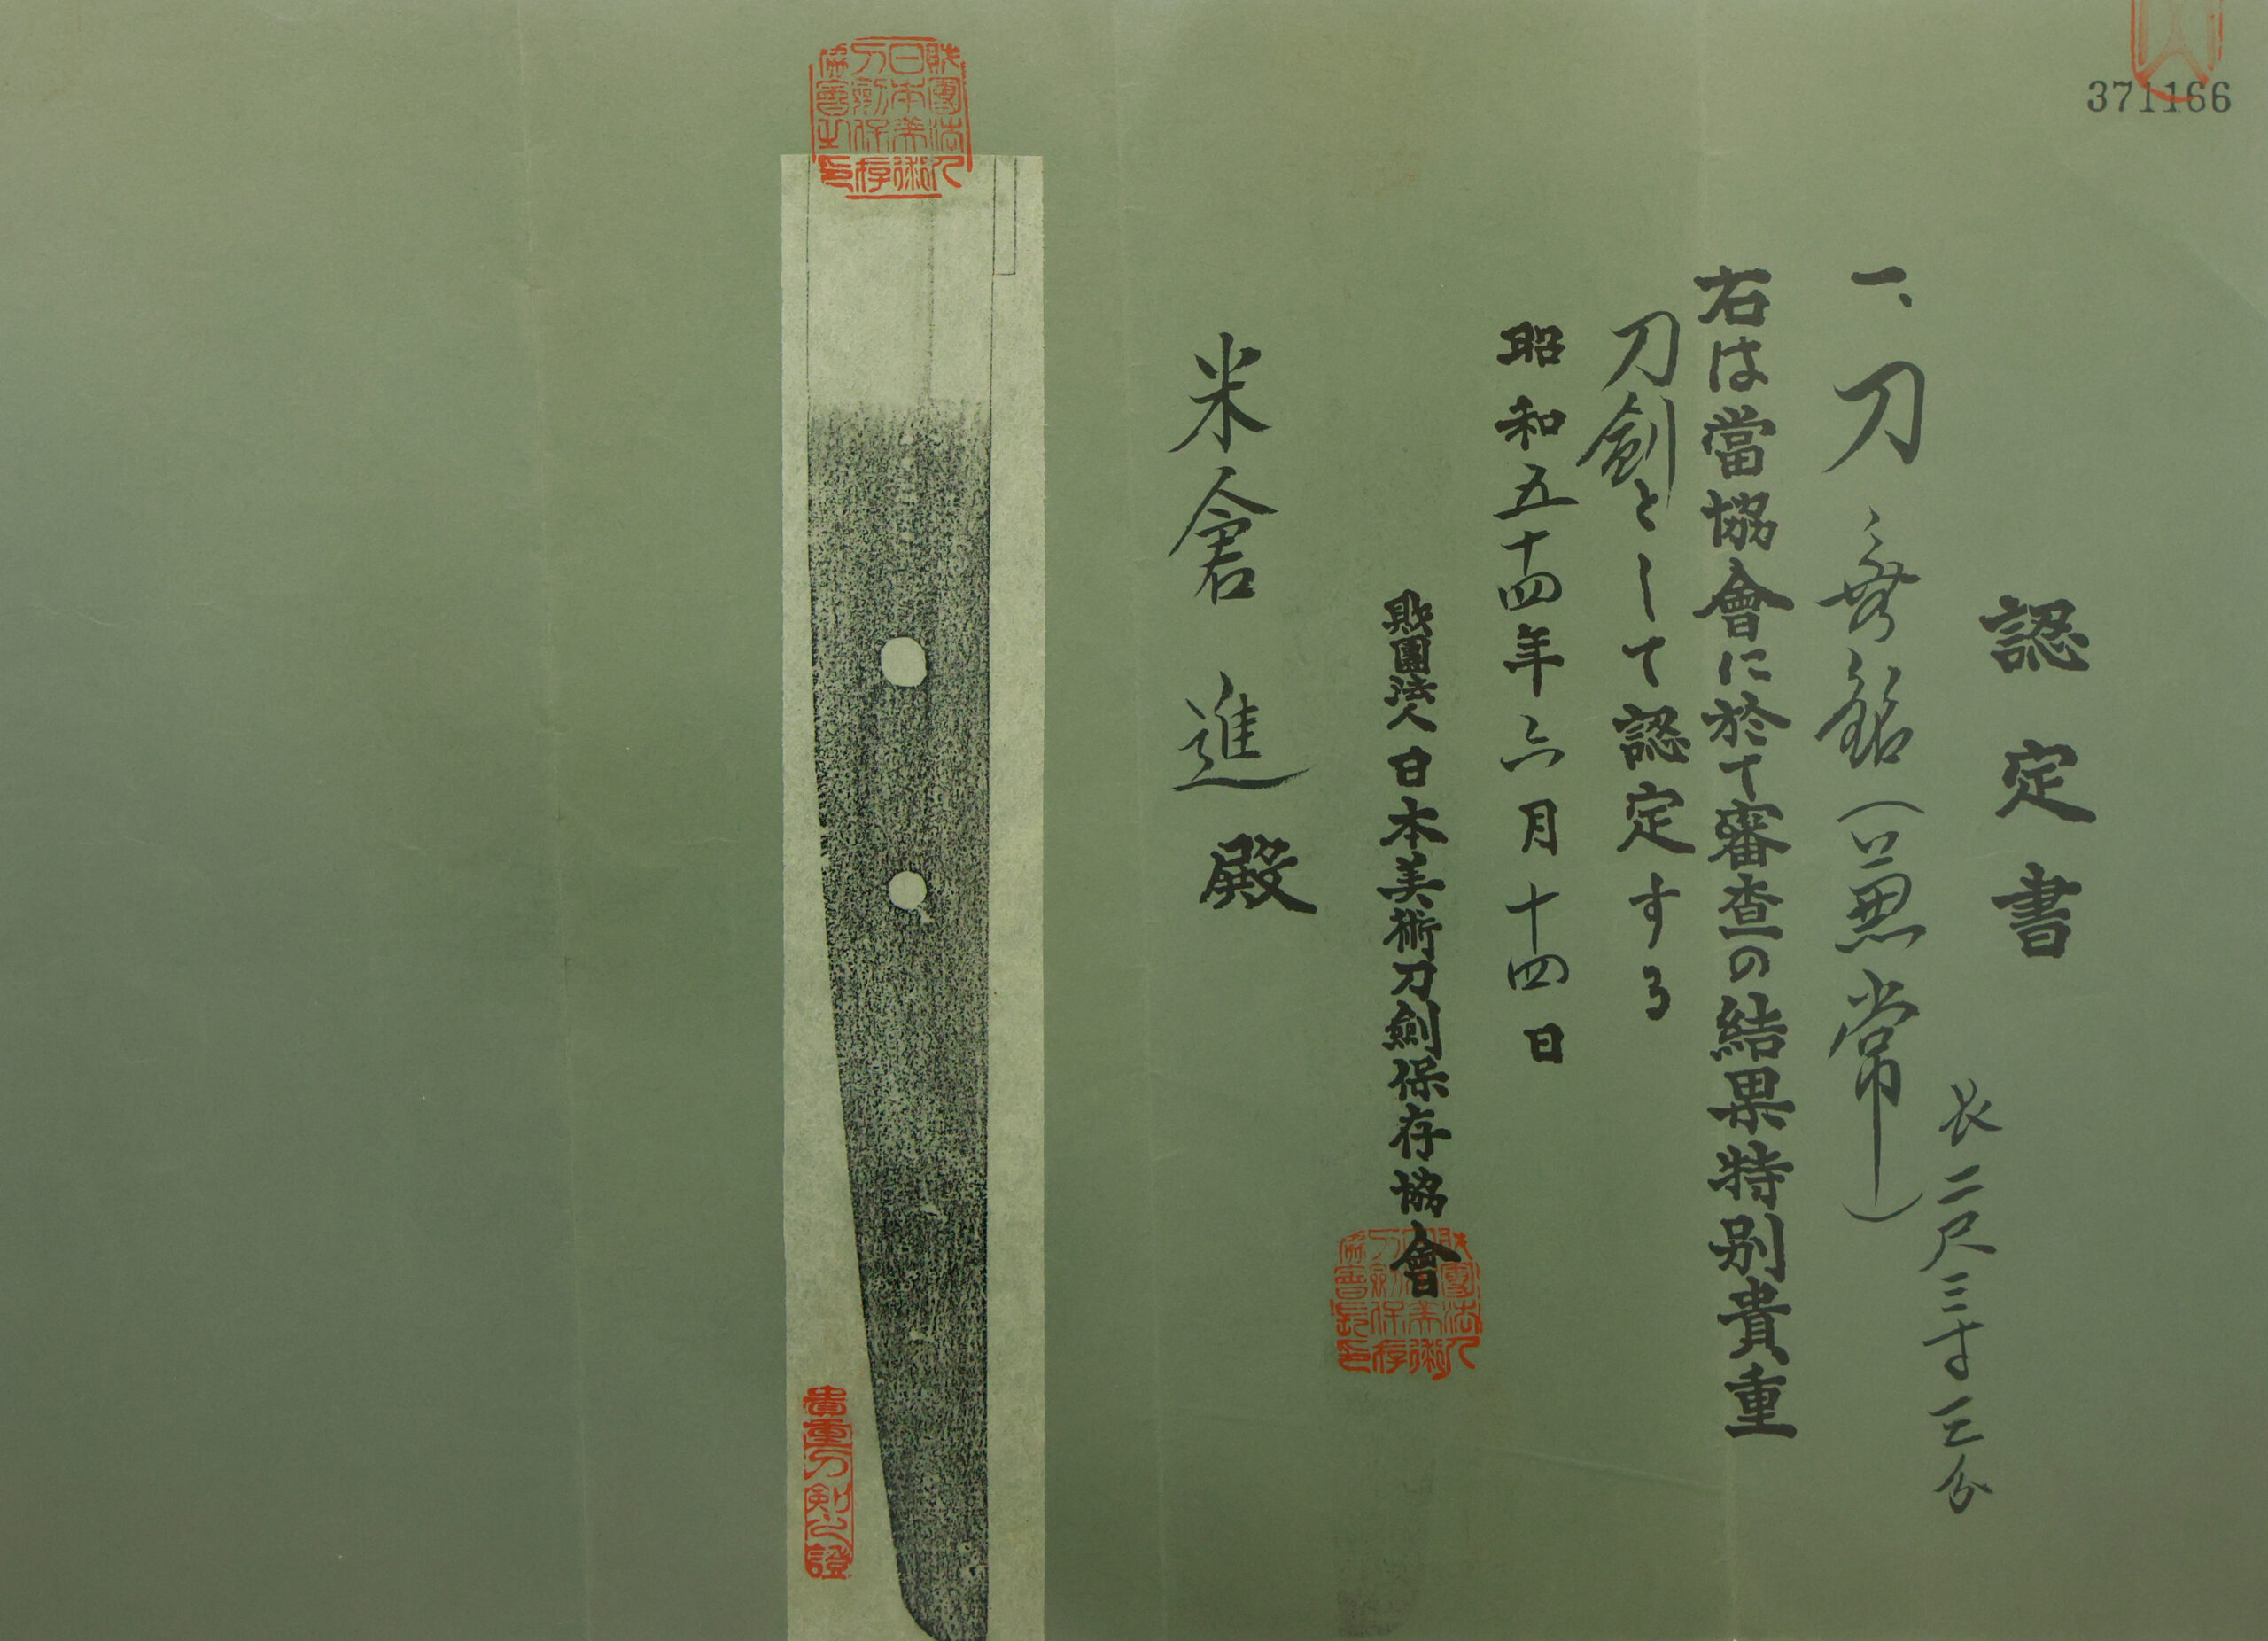 371166
認定書
一、刀 無銘（兼常）
長二尺三寸三分
右は當協會に於て審査の結果特別貴重
刀劍として認定する
昭和五十四年六月十四日
財團法人日本美術刀劍保存協會
財團法人日本美術刀劍保存協會長印
米倉 進 殿
財團法人日本美術刀劍保存協會之印
貴重刀剣之證